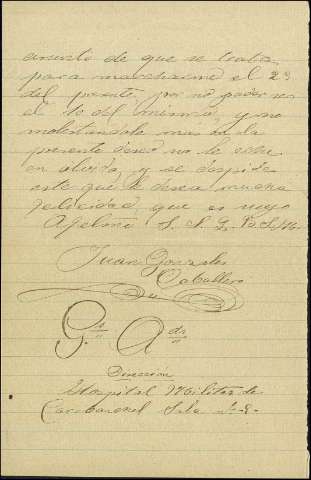 asunto de que se trata,
para marcharme el 23
del presente, por no poder ser
el 10 del mismo, y no
molestandole mas en la
presente deseo no le eche
en olvido, y se despide
este que le desea mucha
felicidad, que es suyo
Afelmo S. S. Q. B. S. M.
Juan Gonzales
Caballero
G. A.
Dirección
Hospital Militar de
Carabanchel Sala